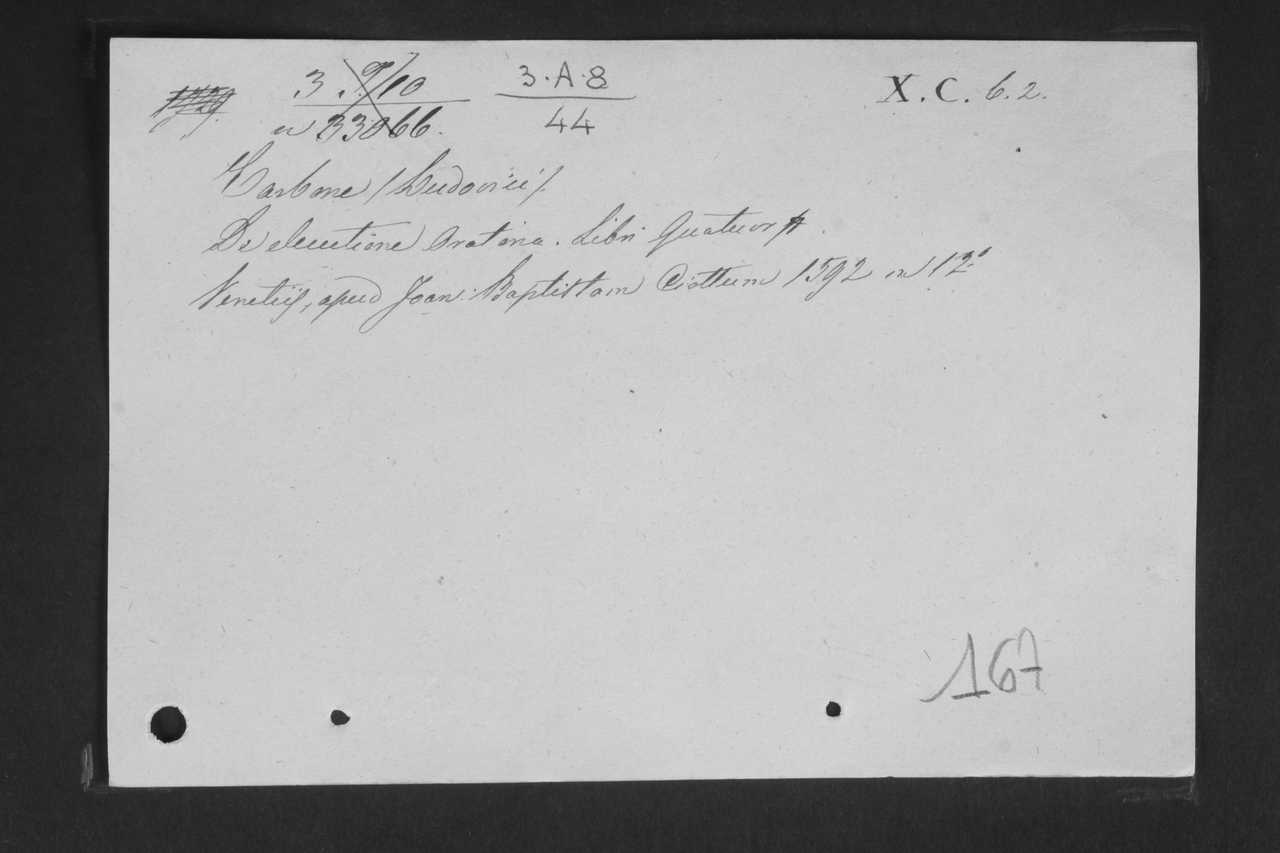 3 . 9/10
3·A·8
X. C. 6. 2.
n 33066.
44
Carbone (Ludovici).
De elocutione Oratoria. Libri Quatuor
Venetiis, apud Joan: Baptistam Ciottum 1592 in 12°
167